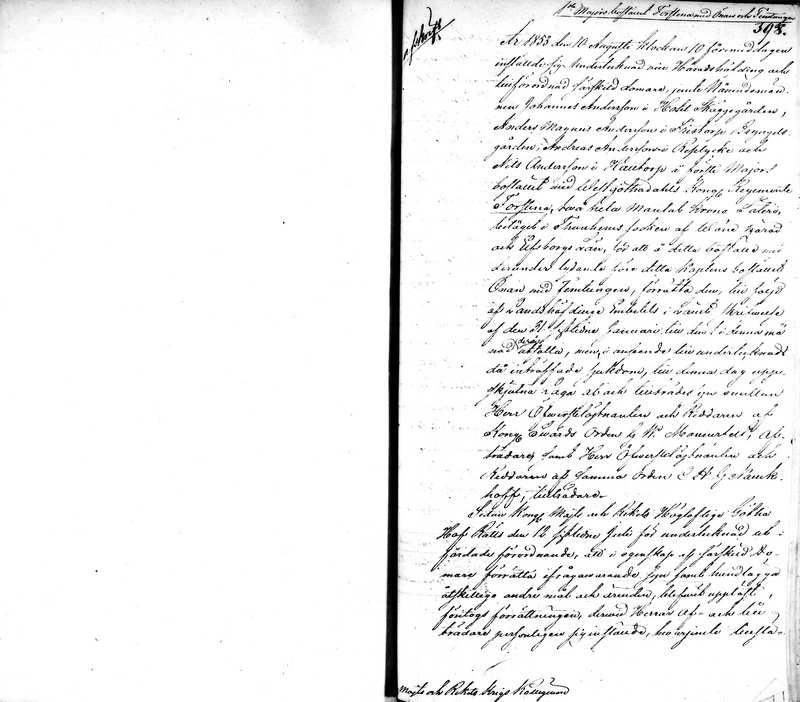 1sta Majors bostället Forstena med Önan och Temtungen
398.
Afskrift
År 1853 den 10 Augusti klockan 10 förmiddagen
inställde sig undertecknad vice Häradshöfding och
tillförordnad särskild domare, jemte Nämndemän-
nen Johannes Andersson i Häggegården,
Anders Magnus Andersson i Bryngels-
gården, Andreas Andersson i Replycke och
Nils Andersson i Håltorp å förste Majors
bostället vid Westgöthadahls Kongl Regemente
Forstena, två hela Mantal Krono Säteri,
beläget i Thunhems socken af Wäne Härad
och Elfsborgs Län, för att å detta boställe med
derunder lydande före detta Kaptens bostället
Önan med Temtungen, förrätta den, till följd
af Landshöfdinge Embetets i Länet skrifvelse
af den 31 sistlidne Januari till den 1 i denna må
nad derå utsatta, men, i anseende till undertecknads
då inträffade sjukdom, till denna dag upp-
skjutna laga af och tillträdes syn emellan
Herr Öfverstelöjtnanten och Riddaren af
Kongl Swärds Orden W. Mannerfelt, af-
trädare, samt Herr Öfverstelöjtnanten och
Riddaren af samma orden C H G
hoff, tillträdare.
Sedan Kongl Majts och Rikets Höglofliga Götha
Hof Rätts den 12 sistlidne Juli för undertecknad ut-
färdade förordnande, att i egenskap af särskild do-
mare förrätta ifrågavarande syn samt handlägga
åtskilliga andra mål och ärenden, blifvit uppläst,
företogs förrättningen, dervid Herrar af- och till-
trädare personligen sig inställde,
Majts och Rikets Krigs Kollegium